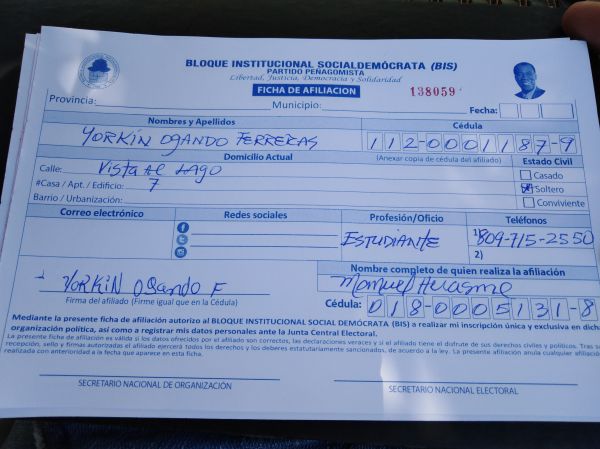 BLOQUE INSTITUCIONAL SOCIALDEMÓCRATA (BIS)
PARTIDO PEÑAGOMISTA
Libertad, Justicia, Democracia y Solidaridad
FICHA DE AFILIACION
138059
Provincia: Municipio: Fecha:
Nombres y Apellidos Cédula
YORKIN OGANDO FERRERAS 112-0001187-9
Domicilio Actual (Anexar copia de cédula del afiliado) Estado Civil
Calle: Vista al Lago Casado
#Casa / Apt. / Edificio: 7 Soltero
Barrio / Urbanización: Conviviente
Correo electrónico Redes sociales Profesión/Oficio Teléfonos
ESTUDIANTE 1) 809-715-2550
2)
Nombre completo de quien realiza la afiliación
YORKIN Ogando F Manuel
Firma del afiliado (Firme igual que en la Cédula) Cédula: 018-0005131-8
Mediante la presente ficha de afiliación autorizo al BLOQUE INSTITUCIONAL SOCIAL DEMÓCRATA (BIS) a realizar mi inscripción única y exclusiva en dicha
organización política, así como a registrar mis datos personales ante la Junta Central Electoral.
La presente ficha de afiliación es válida si los datos ofrecidos por el afiliado son correctos, las declaraciones veraces y si el afiliado tiene el disfrute de sus derechos civiles y políticos. Tras su
recepción, sello y firmas autorizadas el afiliado ejercerá todos los derechos y los deberes estatutariamente sancionados, de acuerdo a la ley. La presente afiliación anula cualquier afiliación
realizada con anterioridad a la fecha que aparece en esta ficha.
SECRETARIO NACIONAL DE ORGANIZACIÓN SECRETARIO NACIONAL ELECTORAL